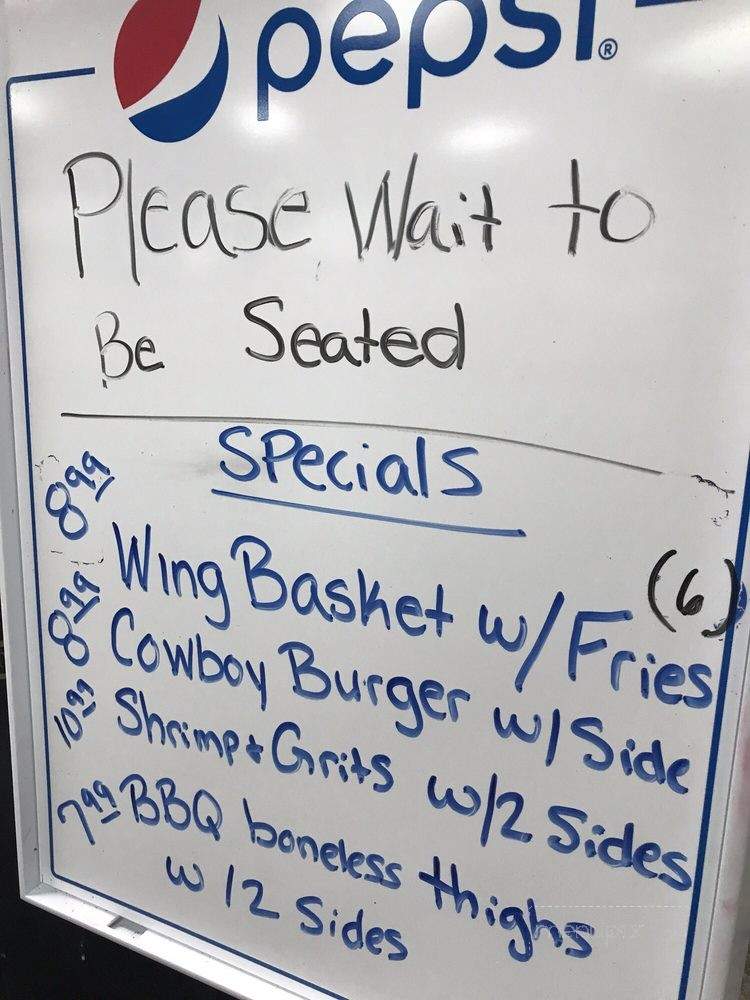 pepsi®
Please Wait to
Be Seated
Specials
8.99 Wing Basket w/Fries (6)
8.99 Cowboy Burger w/Side
10.99 Shrimp + Grits w/2 Sides
7.99 BBQ boneless thighs
w/2 Sides
menupix